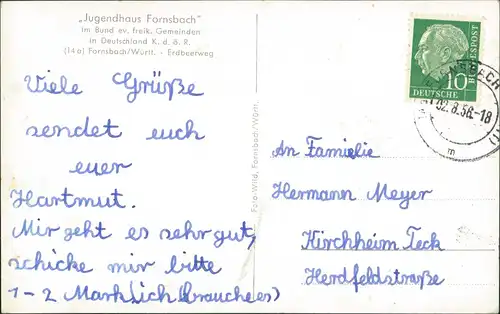 „Jugendhaus Fornsbach"
im Bund ev. freik. Gemeinden
in Deutschland K. d. ö. R.
(14a) Fornsbach/Württ. - Erdbeerweg
Viele Grüße
sendet euch
euer
Hartmut.
Mir geht es sehr gut,
schicke mir bitte
1-2 Mark (ich brauche es)
Foto-Wild, Fornsbach/Württ.
10
DEUTSCHE
BUNDESPOST
12.8.56.-18
m
An Familie
Hermann Meyer
Kirchheim Teck
Herdfeldstraße